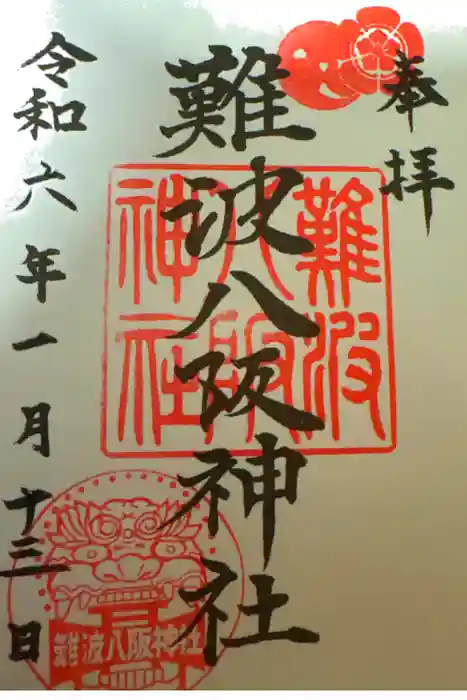 奉拝
難波八阪神社
令和六年一月十三日
難波
八阪
神社
難波八阪神社